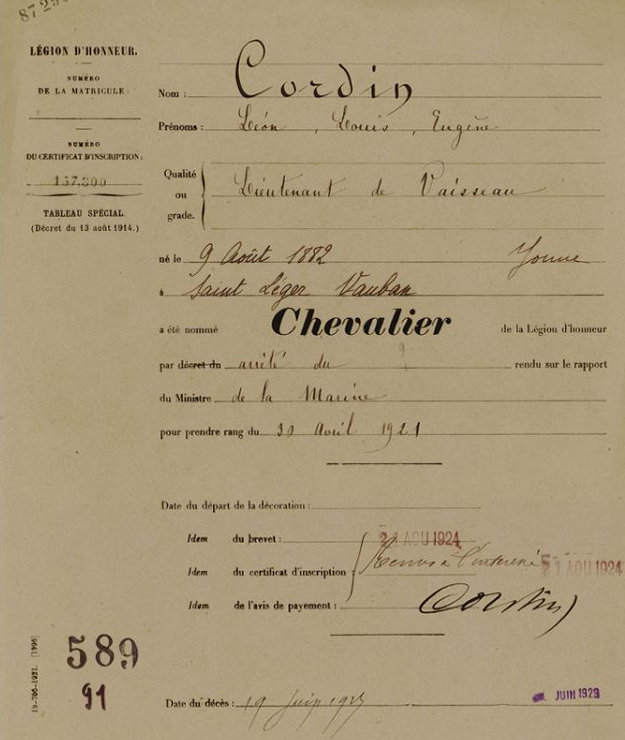 LÉGION D'HONNEUR.
NUMÉRO
DE LA MATRICULE:
NUMÉRO
DU CERTIFICAT D'INSCRIPTION:
TABLEAU SPÉCIAL.
(Décret du 13 août 1914.)
Nom : Cordin
Prénoms : Léon, Louis, Eugène
Qualité
ou
grade.
Lieutenant de Vaisseau
né le 9 Août 1882 Yonne
à Saint Léger Vauban
a été nommé Chevalier de la Légion d'honneur
par décret du arrêté du rendu sur le rapport
du Ministre de la Marine
pour prendre rang du 30 Avril 1921
Date du départ de la décoration :
Idem du brevet : 21 AOU 1924
Idem du certificat d'inscription : Remis à l'intéressé 21 AOU 1924
Idem de l'avis de payement : Cordin
589
91
Date du décès : 19 Juin JUIN 1929